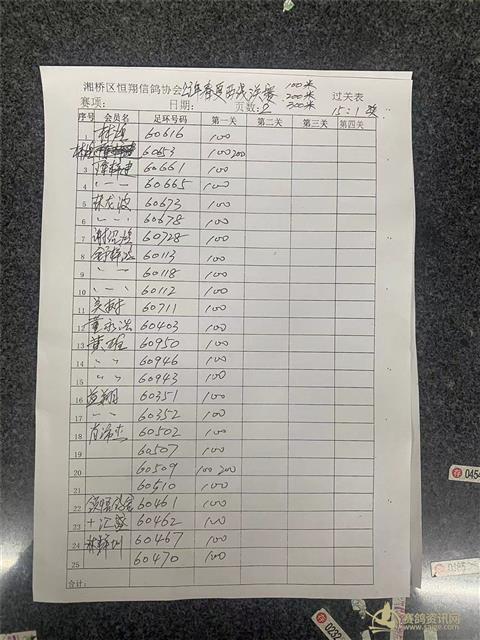 湘桥区恒翔信鸽协会 100米
200米
300米 过关表
赛项: 日期: 页数: 2 15:1
序号 会员名 足环号码 第一关 第二关 第三关 第四关
1 60616 100
2 60653 100 200
3 60661 100
4 〃 一 〃 60665 100
5 林龙波 60673 100
6 〃 一 〃 60678 100
7 60728 100
8 60113 100
9 〃 一 〃 60118 100
10 〃 一 〃 60112 100
11 吴树 60711 100
12 董永浩 60403 100
13 黄雄 60950 100
14 〃 〃 60946 100
15 〃 〃 60943 100
16 60351 100
17 〃 一 〃 60352 100
18 肖沛杰 60502 100
19 60507 100
20 60509 100 200
21 60510 100
22 60461 100
23 60462 100
24 60467 100
25 60470 100
合计:
赛鸽资讯网
www.saige.com